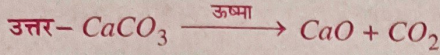 उत्तर– CaCO₃ —ऊष्मा→ CaO + CO₂